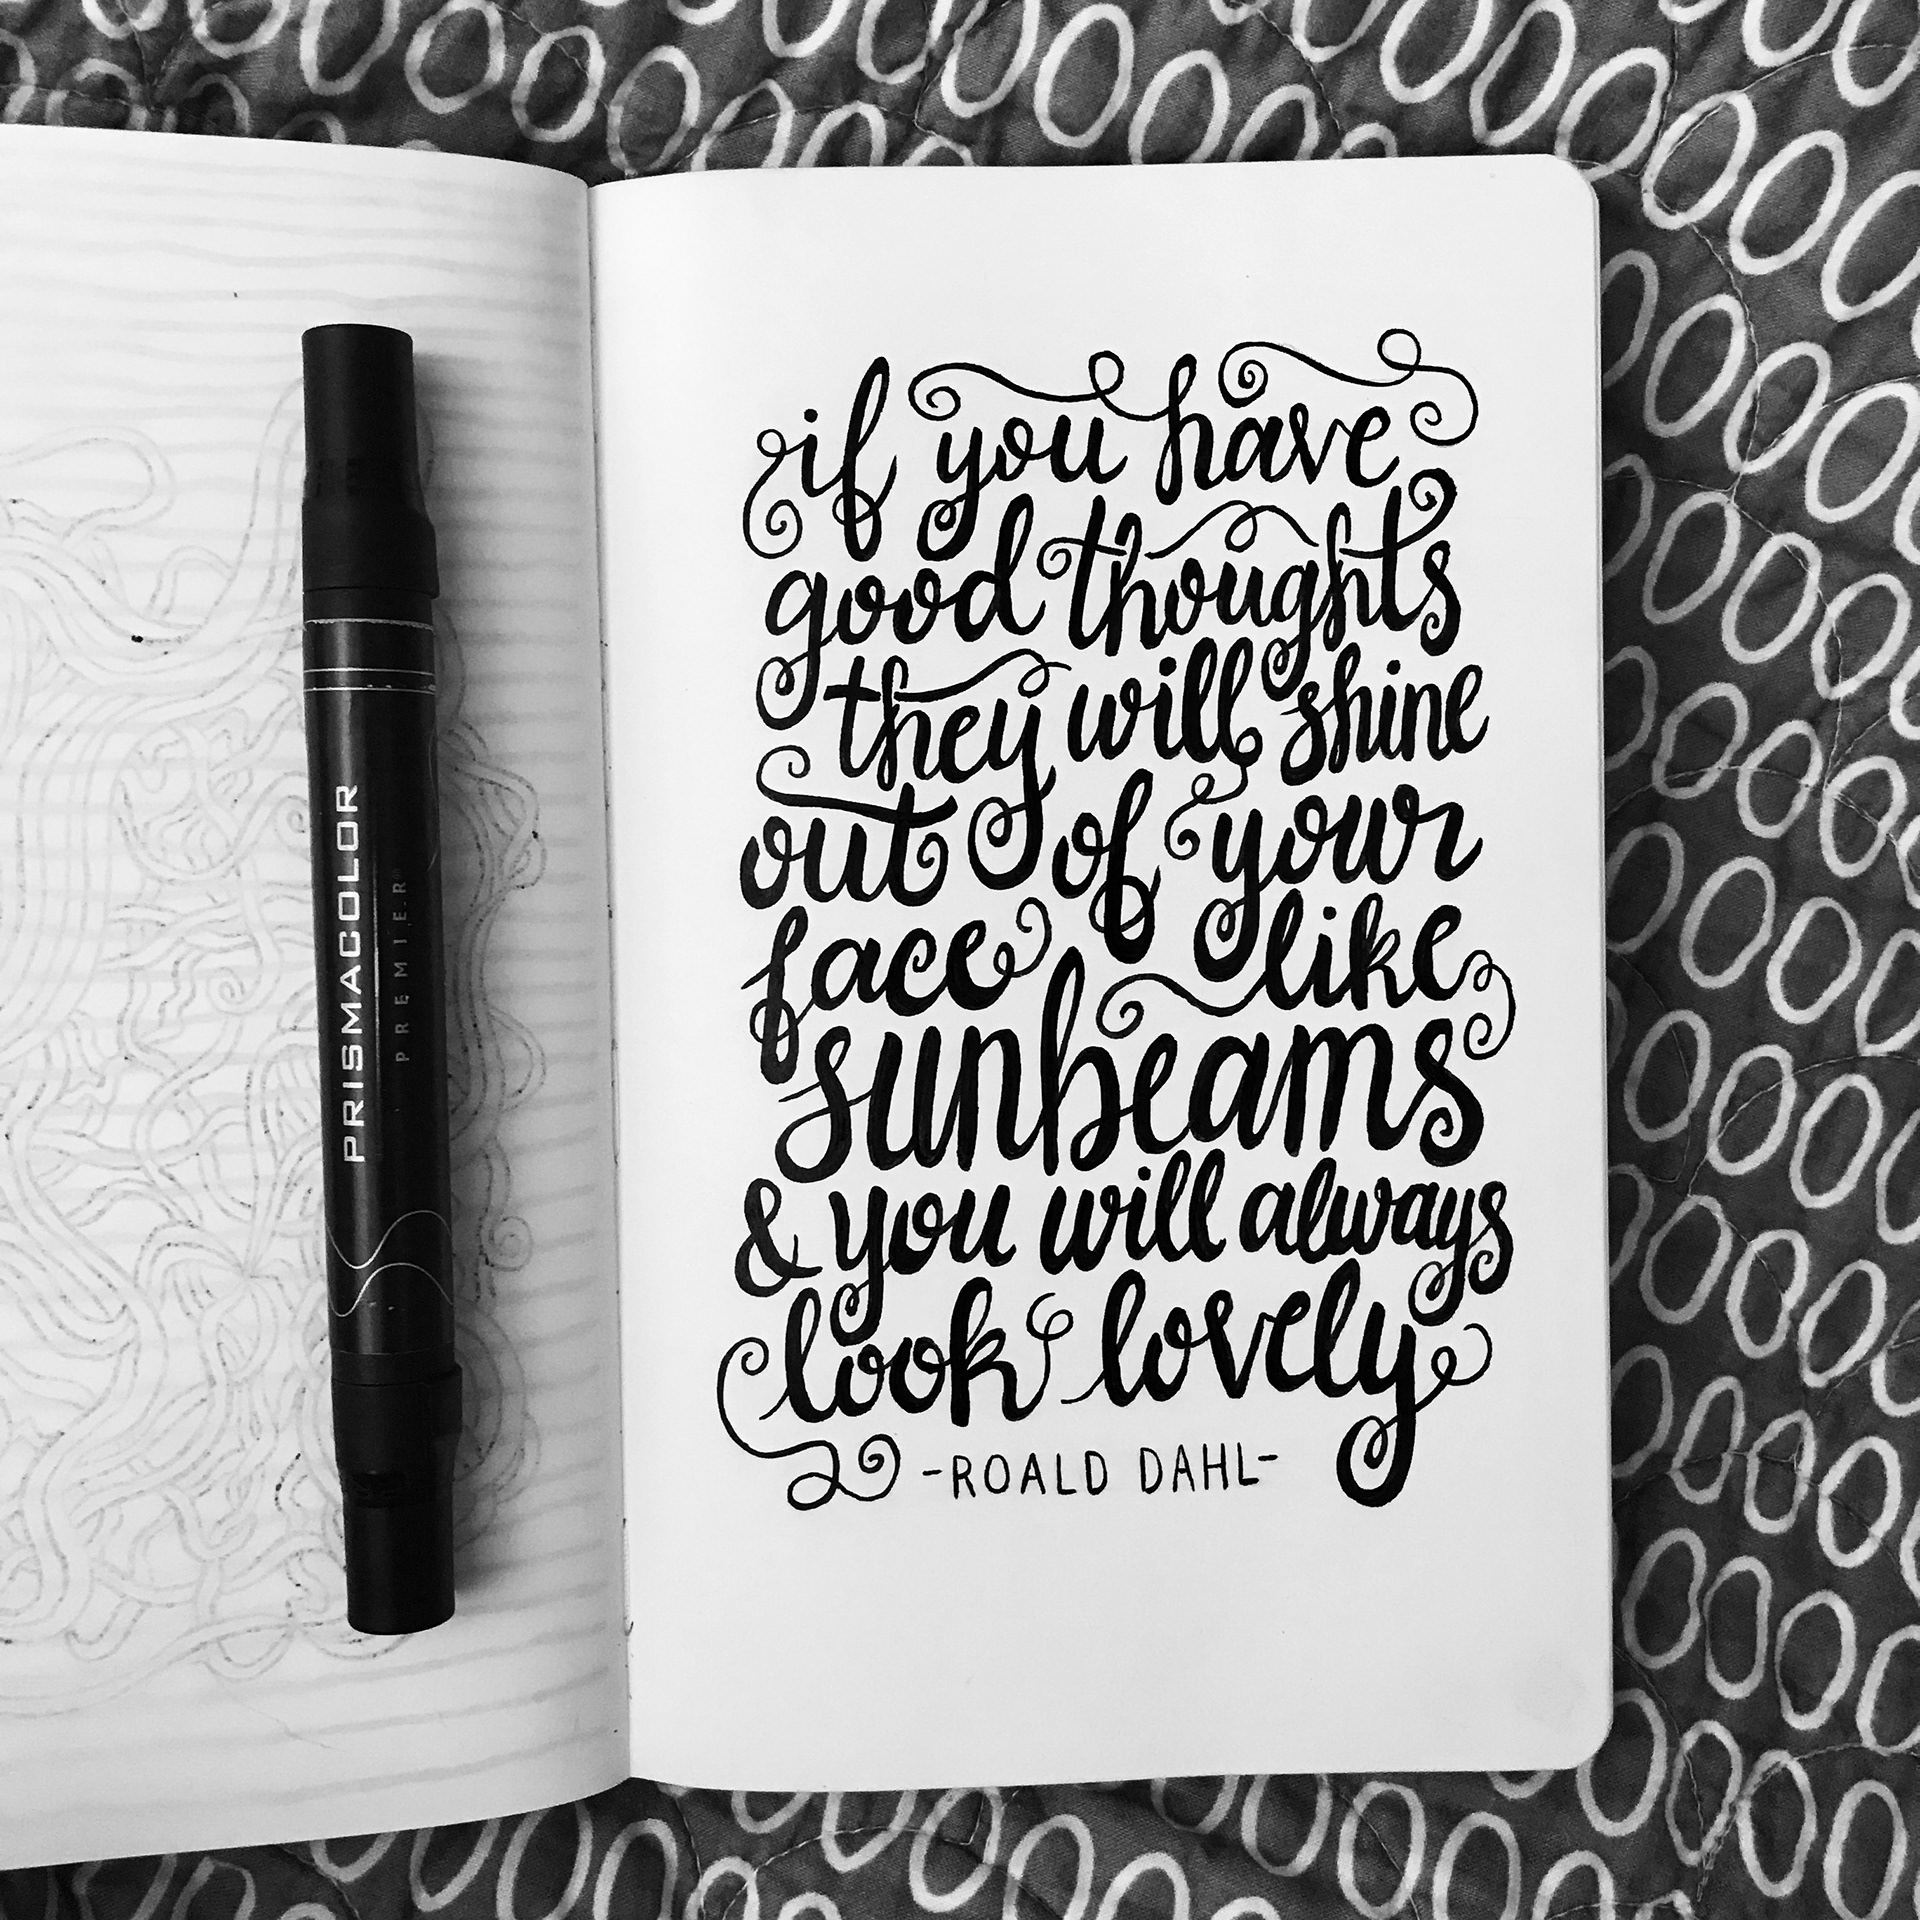 PRISMACOLOR
PREMIER®
if you have
good thoughts
they will shine
out of your
face like
sunbeams
& you will always
look lovely
-ROALD DAHL-